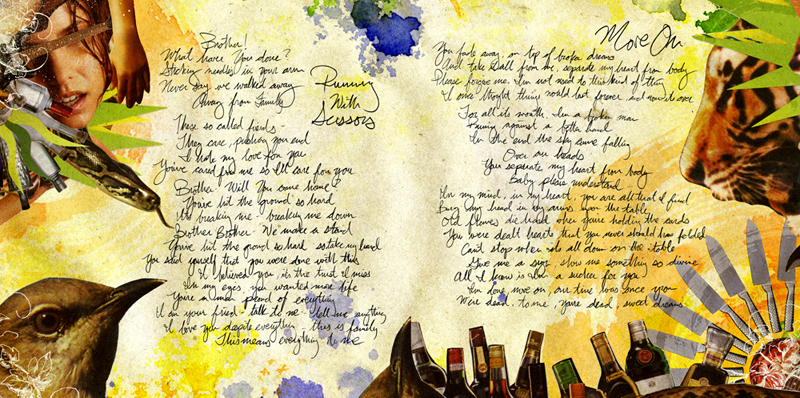 Running
With
Scissors
Brother!
What have You done?
Sticking needles in your arm
Never Say we walked away
Away from Family
These so called friends
They care, pushing you and
I hate my love for you
You've cared for me so I'll care for you
Brother Will You come home?
You've hit the ground so hard
It's breaking me - breaking me down
Brother Brother - We make a stand
You've hit the ground so hard so take my hand
You said yourself that you were done with this
I believed you its the trust I miss
In my eyes, you wanted more life
You're a man of everything
I am your friend - talk to me - tell me anything
I love you despite everything - this is family
This means everything to me
More On
You fade away, on top of broken dreams
and take it all from me, separate my heart from body
Please forgive me, I'm not used to this kind of thing
I once thought things would last forever and now its over
For all its worth, I'm a broken man
against a better hand
In the end the sky came falling
Over our heads
You separate my heart from body
Baby please understand
In my mind, in my heart, you are all that I find
Bury my head in my arms upon the table
Old flames die hard when you're holding the cards
You were dealt hearts that you never should have folded
Can't stop when it's all down on the table
Give me a sign, show me something so divine
All I know is I'm a sucker for you
I'm done, move on, our time was once you
Were dead, to me, you're dead, sweet dreams